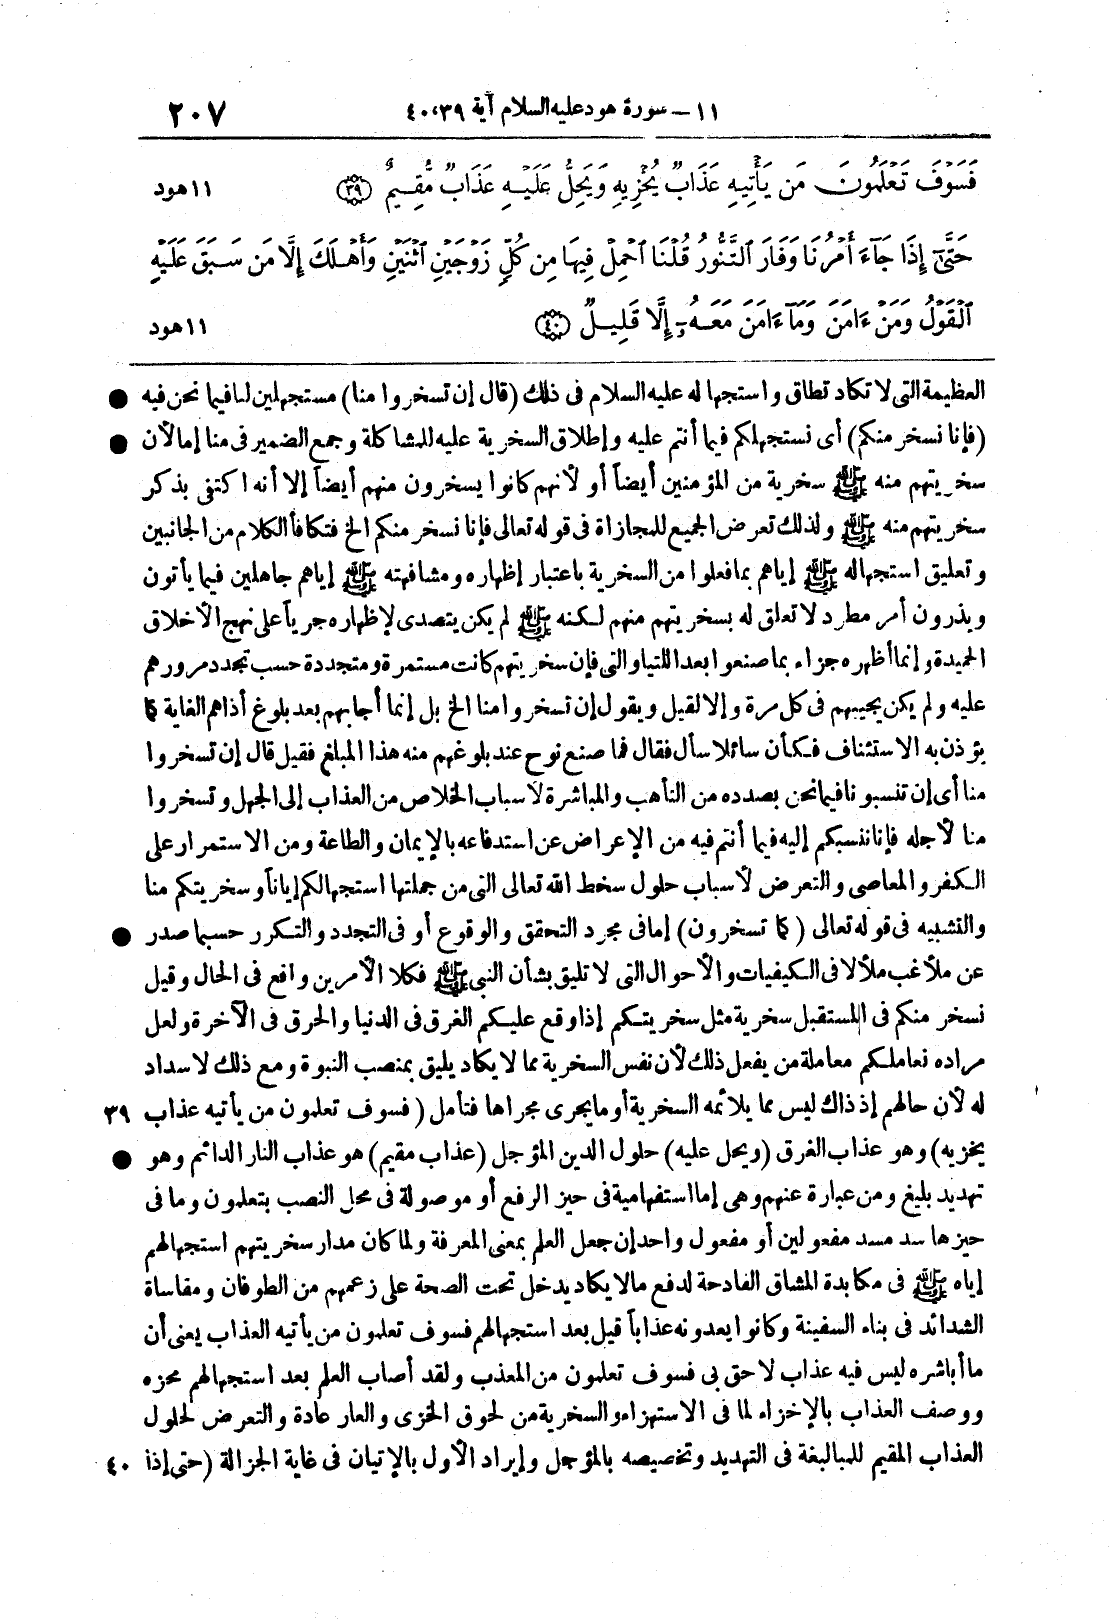 ١١ – سورة هود عليه السلام آية ٤٠،٣٩ ٢٠٧
فَسَوْفَ تَعْلَمُونَ مَن يَأْتِيهِ عَذَابٌ يُخْزِيهِ وَيَحِلُّ عَلَيْهِ عَذَابٌ مُّقِيمٌ ٣٩ ١١ هود
حَتَّىٰٓ إِذَا جَآءَ أَمْرُنَا وَفَارَ ٱلتَّنُّورُ قُلْنَا ٱحْمِلْ فِيهَا مِن كُلٍّ زَوْجَيْنِ ٱثْنَيْنِ وَأَهْلَكَ إِلَّا مَن سَبَقَ عَلَيْهِ
ٱلْقَوْلُ وَمَنْ ءَامَنَ وَمَآ ءَامَنَ مَعَهُۥٓ إِلَّا قَلِيلٌ ٤٠ ١١ هود
العظيمة التى لا تكاد تطاق واستجهالا له عليه السلام فى ذلك (قال إن تسخروا منا) مستجهلين لنا فيما نحن فيه ●
(فإنا نسخر منكم) أى نستجهلكم فيما أنتم عليه وإطلاق السخرية عليه للمشاكلة وجمع الضمير فى منا إما لأن ●
سخريتهم منه ﷺ سخرية من المؤمنين أيضاً أو لأنهم كانوا يسخرون منهم أيضاً إلا أنه اكتفى بذكر
سخريتهم منه ﷺ ولذلك تعرض الجميع للمجازاة فى قوله تعالى فإنا نسخر منكم الخ فتكافأ الكلام من الجانبين
وتعليق استجهاله ﷺ إياهم بما فعلوا من السخرية باعتبار إظهاره ومشافهته ﷺ إياهم جاهلين فيما يأتون
ويذرون أمر مطرد لا تعلق له بسخريتهم منهم لكنه ﷺ لم يكن يتصدى لإظهاره جرياً على نهج الأخلاق
الحميدة وإنما أظهره جزاء بما صنعوا بعد اللتيا والتى فإن سخريتهم كانت مستمرة ومتجددة حسب تجدد مرورهم
عليه ولم يكن يجيبهم فى كل مرة وإلا لقيل ويقول إن تسخروا منا الخ بل إنما أجابهم بعد بلوغ أذاهم الغاية كما
يؤذن به الاستئناف فكأن سائلا سأل فقال فما صنع نوح عند بلوغهم منه هذا المبلغ فقيل قال إن تسخروا
منا أى إن تنسبونا فيما نحن بصدده من التأهب والمباشرة لأسباب الخلاص من العذاب إلى الجهل وتسخروا
منا لأجله فإنا ننسبكم إليه فيما أنتم فيه من الإعراض عن استدفاعه بالإيمان والطاعة ومن الاستمرار على
الكفر والمعاصى والتعرض لأسباب حلول سخط الله تعالى التى من جملتها استجهالكم إيانا وسخريتكم منا
والتشبيه فى قوله تعالى (كما تسخرون) إما فى مجرد التحقق والوقوع أو فى التجدد والتكرر حسبما صدر ●
عن ملأ غب ملأ لا فى الكيفيات والأحوال التى لا تليق بشأن النبى ﷺ فكلا الأمرين واقع فى الحال وقيل
نسخر منكم فى المستقبل سخرية مثل سخريتكم إذا وقع عليكم الغرق فى الدنيا والحرق فى الآخرة ولعل
مراده نعاملكم معاملة من يفعل ذلك لأن نفس السخرية مما لا يكاد يليق بمنصب النبوة ومع ذلك لا سداد
له لأن حالهم إذ ذاك ليس مما يلائمه السخرية أو ما يجرى مجراها فتأمل (فسوف تعلمون من يأتيه عذاب ٣٩
يخزيه) وهو عذاب الغرق (ويحل عليه) حلول الدين المؤجل (عذاب مقيم) هو عذاب النار الدائم وهو ●
تهديد بليغ ومن عبارة عنهم وهى إما استفهامية فى حيز الرفع أو موصولة فى محل النصب بتعلمون وما فى
حيزها سد مسد مفعولين أو مفعول واحد إن جعل العلم بمعنى المعرفة ولما كان مدار سخريتهم استجهالهم
إياه ﷺ فى مكابدة المشاق الفادحة لدفع ما لا يكاد يدخل تحت الصحة على زعمهم من الطوفان ومقاساة
الشدائد فى بناء السفينة وكانوا يعدونه عذاباً قيل بعد استجهالهم فسوف تعلمون من يأتيه العذاب يعنى أن
ما أباشره ليس فيه عذاب لاحق بى فسوف تعلمون من المعذب ولقد أصاب العلم بعد استجهالهم محزه
ووصف العذاب بالإخزاء لما فى الاستهزاء والسخرية من لحوق الخزى والعار عادة والتعرض لحلول
العذاب المقيم للمبالغة فى التهديد وتخصيصه بالمؤجل وإيراد الأول بالإتيان فى غاية الجزالة (حتى إذا ٤٠